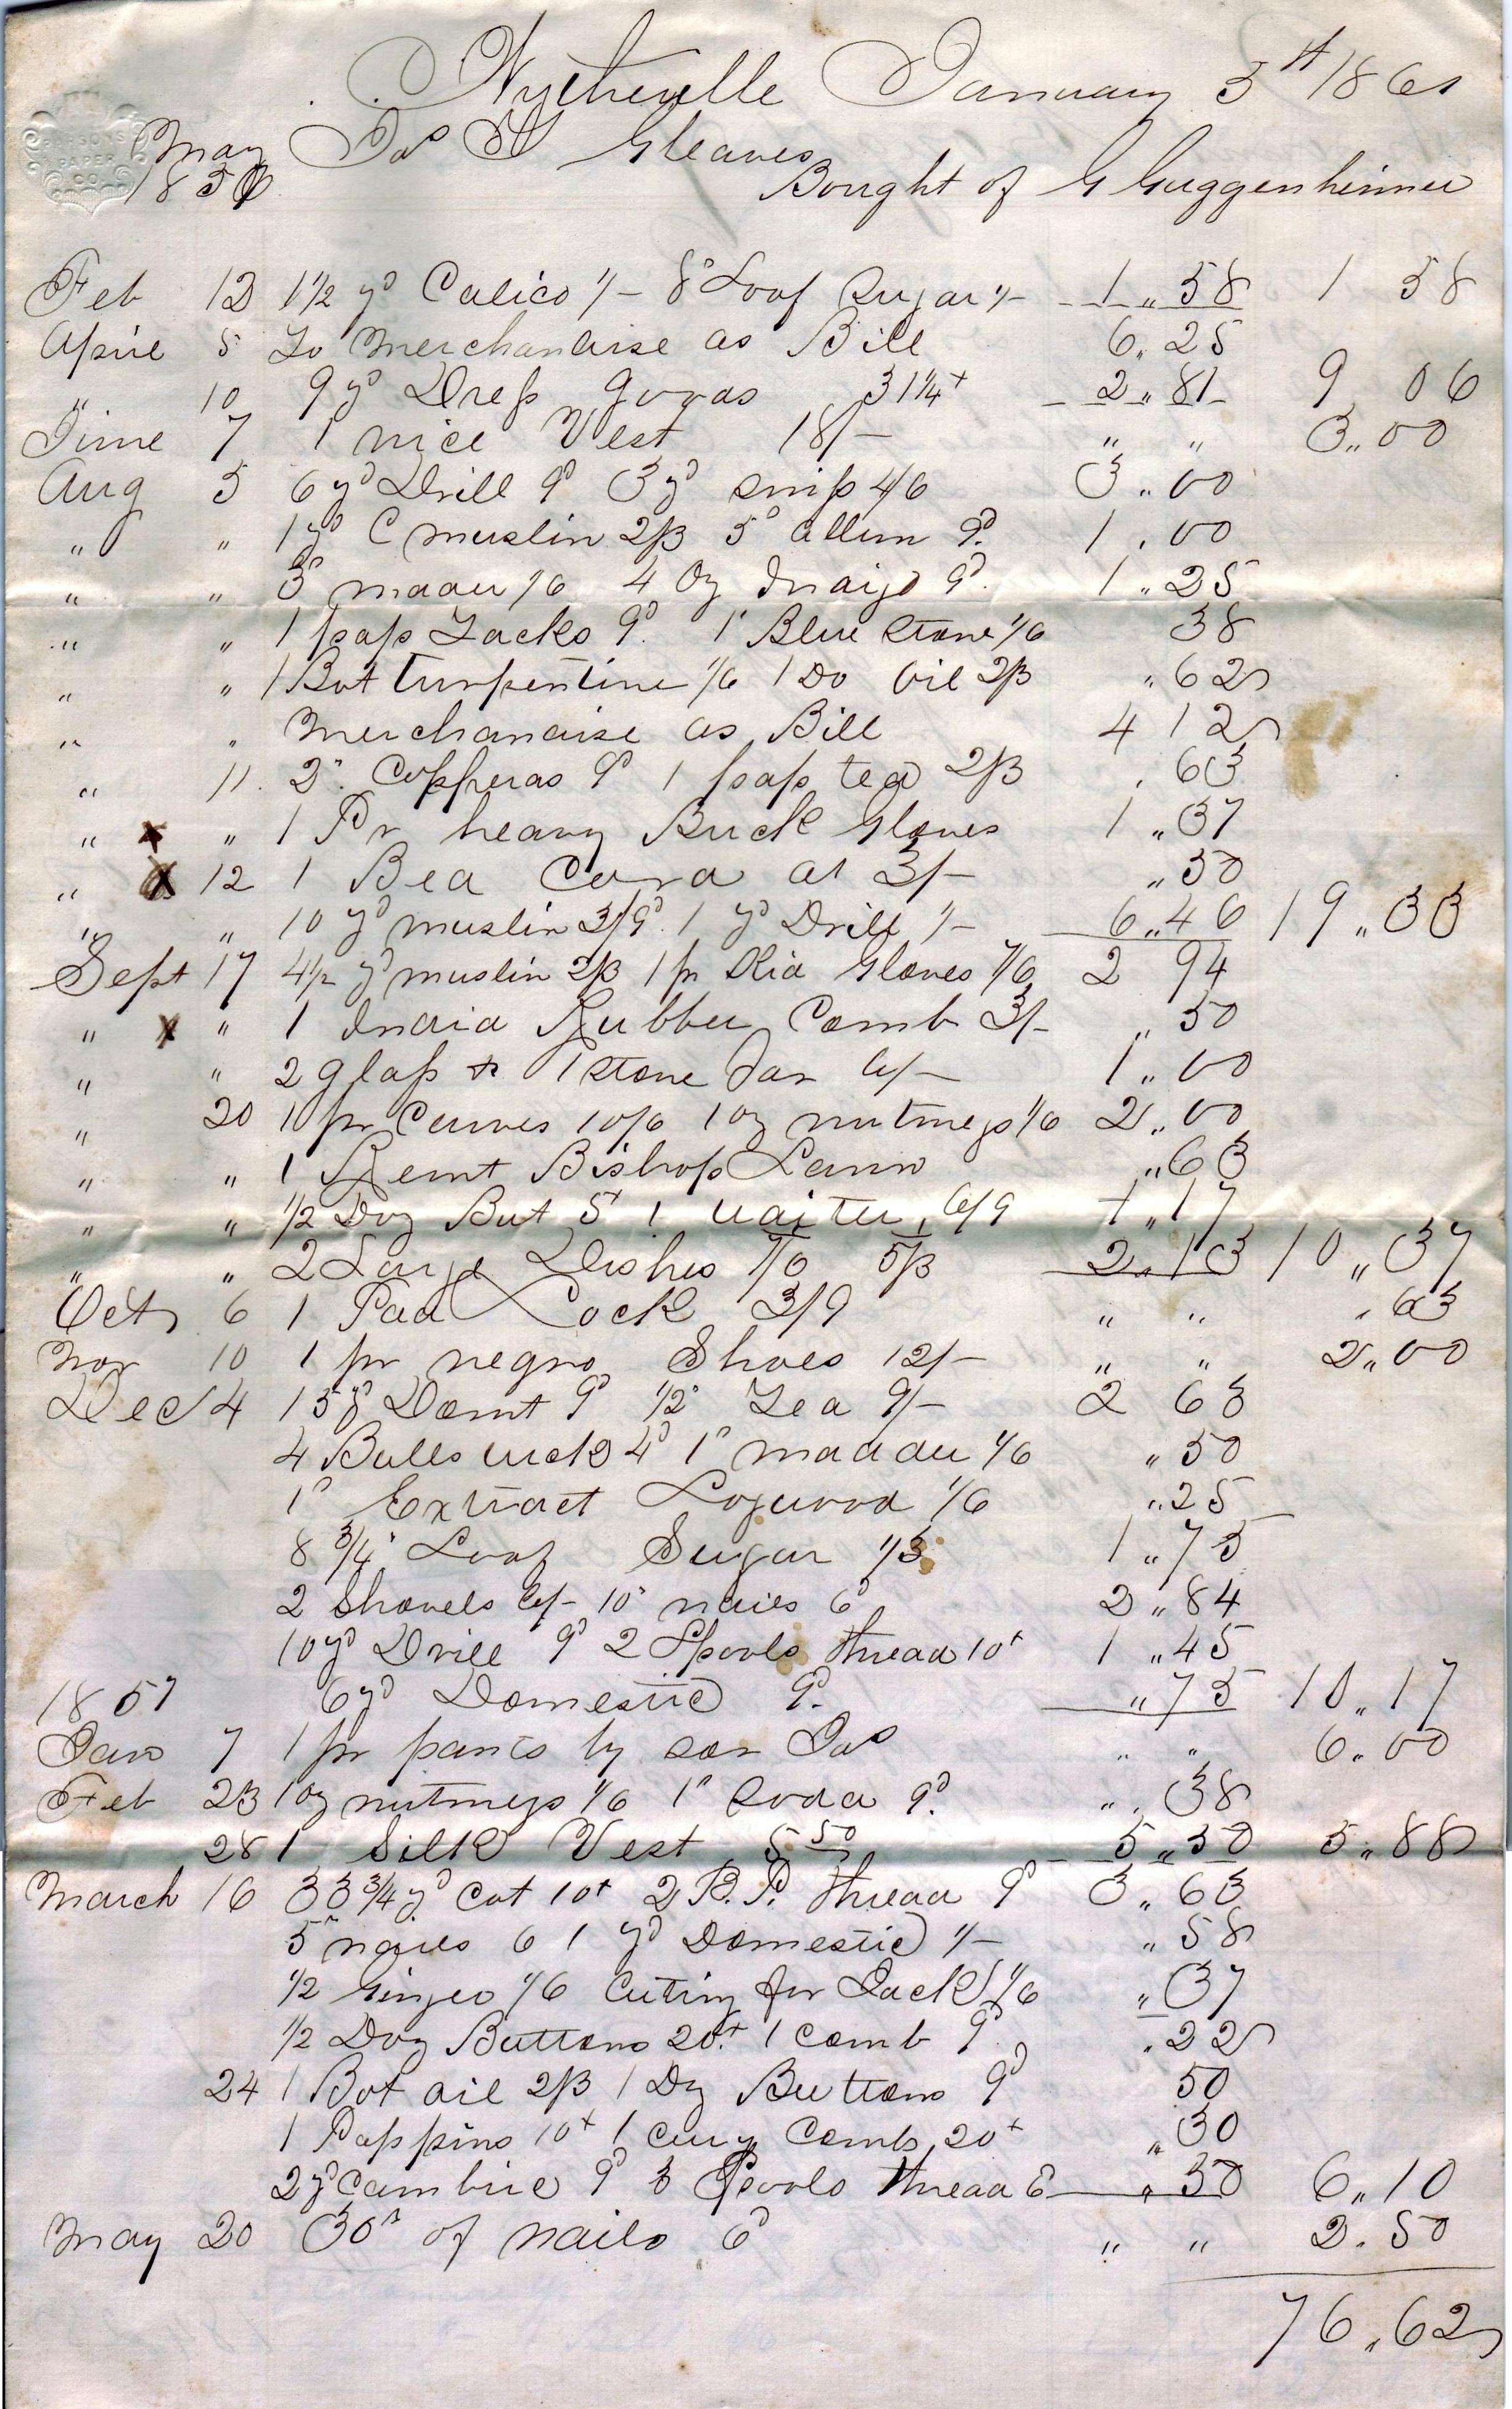 Wytheville January 5th 1861
PARSONS PAPER CO
May Jas T Gleaves
1856 Bought of G Guggenheimer
Feb 12 1 1/2 yd Calico 1/- 8" Loaf Sugar 1/- 1 " 58 1 58
Aprile 5 To Merchandise as Bill 6 " 25
" 10 9 yd Dress goods 31 1/4 2 " 81 9 06
June 7 1 nice Vest 18/- " " 3 " 00
Aug 5 6 yd Drill 9d 3 yd 4/6 3 " 00
" " 1 yd C muslin 2/3 5" allum 9d 1 . 00
" " 3" madder 1/6 4 Oz Indigo 9d 1 " 25
" " 1 pap Tacks 9d 1" Blue Stone 1/6 38
" " 1 Bot Turpentine 1/6 1 Do Oil 2/3 " 62
" " Merchandise as Bill 4 12
" 11 2" Copperas 9d 1 pap tea 2/3 . 63
" x " 1 Pr heavy Buck Gloves 1 " 37
" x 12 1 Bed Cord at 3/- " 50
" " 10 yd muslin 3/9d 1 yd Drill 1/- 6 " 46 19 " 33
Sept 17 4 1/2 yd muslin 2/3 1 pr Kid Gloves 7/6 2 94
" x " 1 India Rubber Comb 3/- " 50
" " 2 glass & 1 Stone Jar 6/- 1 " 00
" 20 1 pr 10/6 1 oz nutmegs 1/6 2 " 00
" " 1 Remt Bishop Lawn " 63
" " 1/2 Doz But 5 1 waiter 6/9 1 " 17
" " 2 Large Dishes 7/6 5/3 2 " 13 10 " 37
Oct 6 1 Pad Lock 3/9 " " . 63
Nov 10 1 pr negro Shoes 12/- " " 2 " 00
Dec 4 15 yd Domt 9d 1/2" Tea 9/- 2 63
4 Balls wick 4d 1" madder 1/6 " 50
1" Extract Logwood 1/6 " 25
8 3/4" Loaf Sugar 1/3 1 " 75
2 Shovels 6/- 10" nails 6d 2 " 84
10 yd Drill 9d 2 Spools thread 10 1 " 45
1857 6 yd Domestic 9d " 75 10 " 17
Jan 7 1 pr pants by son Jas " " 6 " 00
Feb 23 1 oz nutmegs 1/6 1" Soda 9d " . 38
28 1 Silk Vest 5 50 5 " 50 5 " 88
March 16 33 3/4 yd Cot 10 2 B. P. thread 9d 3 " 63
5" nails 6 1 yd Domestic 1/- " 58
1/2 Ginger 1/6 Cuting for Jack 1/6 " 37
1/2 Doz Buttons 20 1 Comb 9d . 22
24 1 Bot oil 2/3 1 Dz Buttons 9d 50
1 Pap pins 10 1 Cury Comb 20 " 30
2 yd Cambric 9d 3 Spools thread 6 " 50 6 " 10
May 20 30" of nails 6d " " 2 . 50
76 " 62